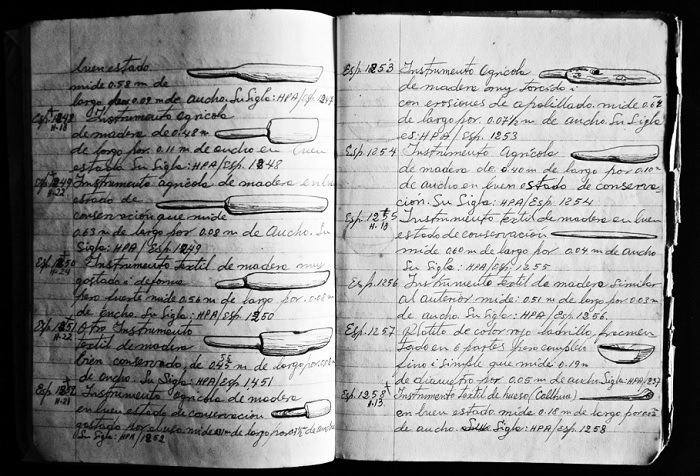 buen estado
mide 0.58 m de
largo por 0.09 m de ancho. Su Sigla: HPA/Esp. 1247
Esp. 1248 Instrumento Agricola
H-18
de madera de 0.48 m
de largo por 0.11 m de ancho en buen
estado Su Sigla: HPA/Esp. 1248
Esp. 1249 Instrumento agricola de madera en
H-22
estado de
conservacion que mide
0.63 m de largo por 0.08 m de Ancho. Su
Sigla: HPA/Esp. 1249
Esp. 1250 Instrumento Textil de madera muy
H-24
gastado i deforme
pero fuerte mide 0.56 m de largo por
de ancho. Su Sigla: HPA/Esp. 1250
Esp. 1251 Otro Instrumento
H-22
textil de madera
bien conservado, de m. de largo por
de ancho. Su Sigla: HPA/Esp. 1,451
Esp. 1252 Instrumento Agricola de madera
H-21
en buen estado de conservacion
gastado por el uso. mide de largo por de ancho
Su Sigla: HPA/Esp. 1252
Esp. 1253 Instrumento Agricola
de madera muy torcido i
con erosiones de apolillado. mide
de largo por 0.07½ m de ancho. Su Sigla
es: HPA/Esp. 1253
Esp. 1254 Instrumento Agricola
de madera de 0.40 m de largo por 0.10 m
de ancho en buen estado de conserva
cion. Su Sigla: HPA/Esp. 1254
Esp. 1255 Instrumento Textil de madera en buen
H.18
estado de conservación
mide 0.60 m de largo por 0.04 m de ancho
Su Sigla: HPA/Esp. 1255
Esp. 1256 Instrumento Textil de madera Similar
al anterior mide: 0.51 m de largo por 0.02 m
de ancho Su Sigla: HPA/Esp. 1256.
Esp. 1257 Platito de color rojo ladrillo fracmen
tado en 6 partes pero completo
fino i simple que mide 0.19 m
de diametro por 0.05 m de ancho Sigla: HPA/
Esp. 1258 Instrumento Textil de hueso (Callhua)
H.13
en buen estado mide 0.18 m de largo por
de ancho. Sigla: HPA/Esp. 1258